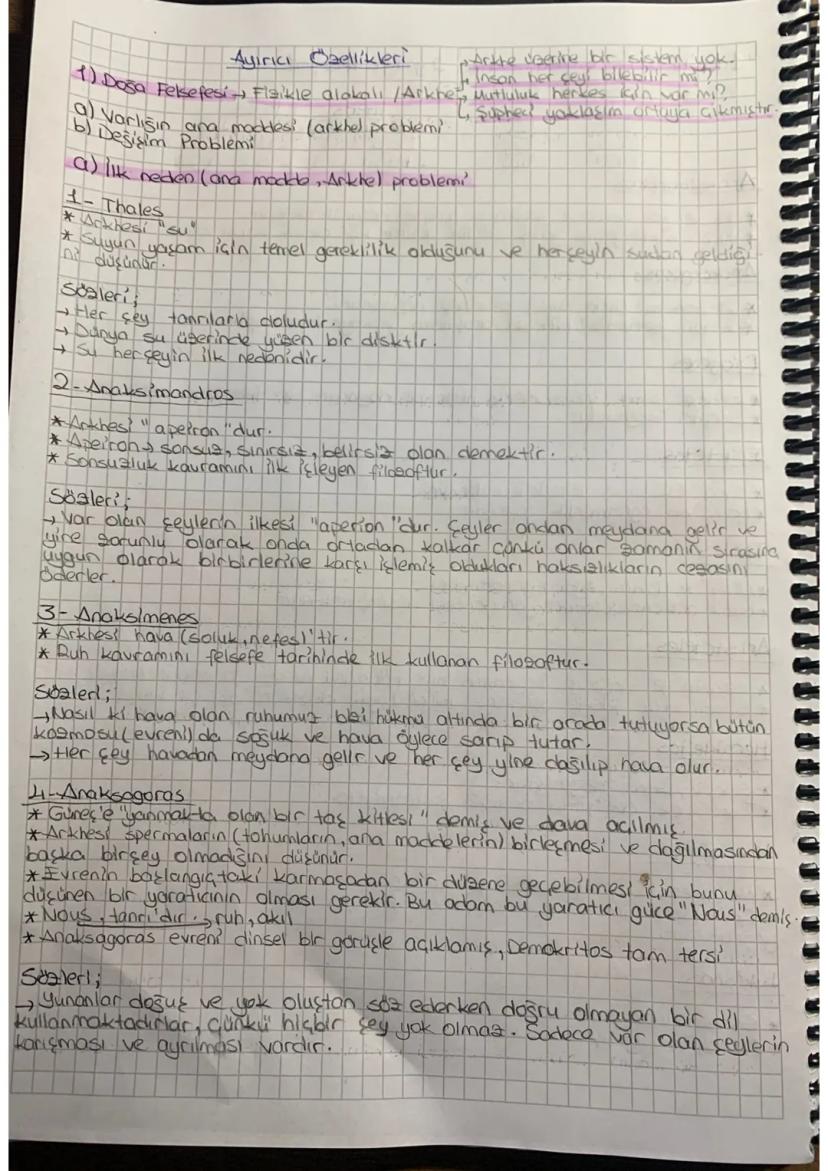 Ayırıcı Özellikleri
→ Arkhe üzerine bir sistem yok.
→ İnsan her şeyi bilebilir mi?
1) Doğa Felsefesi → Fizikle alakalı / Arkhe → Mutluluk herkes için var mı?
↳ Şüpheci yaklaşım ortaya çıkmıştır.
a) Varlığın ana maddesi (arkhe) problemi
b) Değişim Problemi
a) İlk neden (ana madde, Arkhe) problemi
1- Thales
* Arkhesi "su"
* Suyun yaşam için temel gereklilik olduğunu ve herşeyin sudan geldiği
ni düşünür.
Sözleri;
→ Her şey tanrılarla doludur.
→ Dünya su üzerinde yüzen bir disktir.
→ Su herşeyin ilk nedenidir.
2- Anaksimandros
* Arkhesi "apeiron"dur.
* Apeiron → sonsuz, sınırsız, belirsiz olan demektir.
* Sonsuzluk kavramını ilk işleyen filozoftur.
Sözleri;
→ Var olan şeylerin ilkesi "aperion"dur. Şeyler ondan meydana gelir ve
yine zorunlu olarak onda ortadan kalkar çünkü onlar zamanın sırasına
uygun olarak birbirlerine karşı işlemiş oldukları haksızlıkların cezasını
öderler.
3- Anaksimenes
* Arkhesi hava (soluk, nefes)'tir.
* Ruh kavramını felsefe tarihinde ilk kullanan filozoftur.
Sözleri;
→ Nasıl ki hava olan ruhumuz bizi hükmü altında bir arada tutuyorsa bütün
kozmosu (evreni) da soğuk ve hava öylece sarıp tutar.
→ Her şey havadan meydana gelir ve her şey yine dağılıp hava olur.
4- Anaksagoras
* Güneş'e "yanmakta olan bir taş kitlesi" demiş ve dava açılmış.
* Arkhesi spermaların (tohumların, ana maddelerin) birleşmesi ve dağılmasından
başka birşey olmadığını düşünür.
* Evrenin başlangıçtaki karmaşadan bir düzene geçebilmesi için bunu
düşünen bir yaratıcının olması gerekir. Bu adam bu yaratıcı güce "Nous" demiş.
* Nous, tanrı'dır. → ruh, akıl
* Anaksagoras evreni dinsel bir görüşle açıklamış, Demokritos tam tersi
Sözleri;
→ Yunanlar doğuş ve yok oluştan söz ederken doğru olmayan bir dil
kullanmaktadırlar, çünkü hiçbir şey yok olmaz. Sadece var olan şeylerin
karışması ve ayrılması vardır.